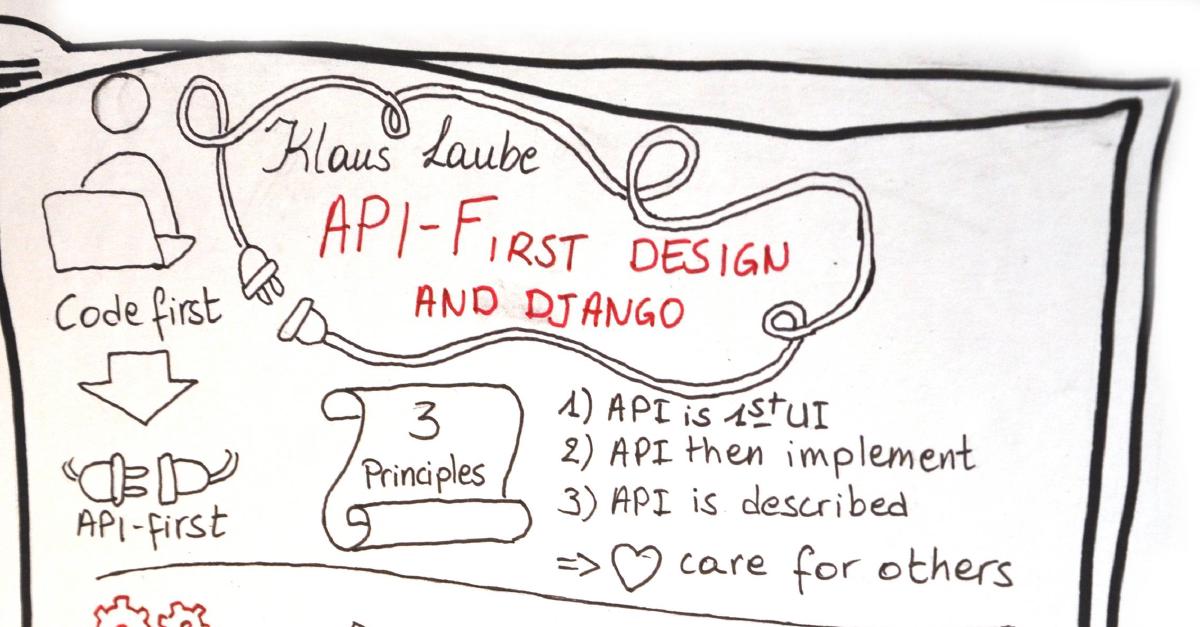 Klaus Laube
API-FIRST DESIGN
AND DJANGO
Code first
API-first
3
Principles
1) API is 1st UI
2) API then implement
3) API is described
=> ♡ care for others